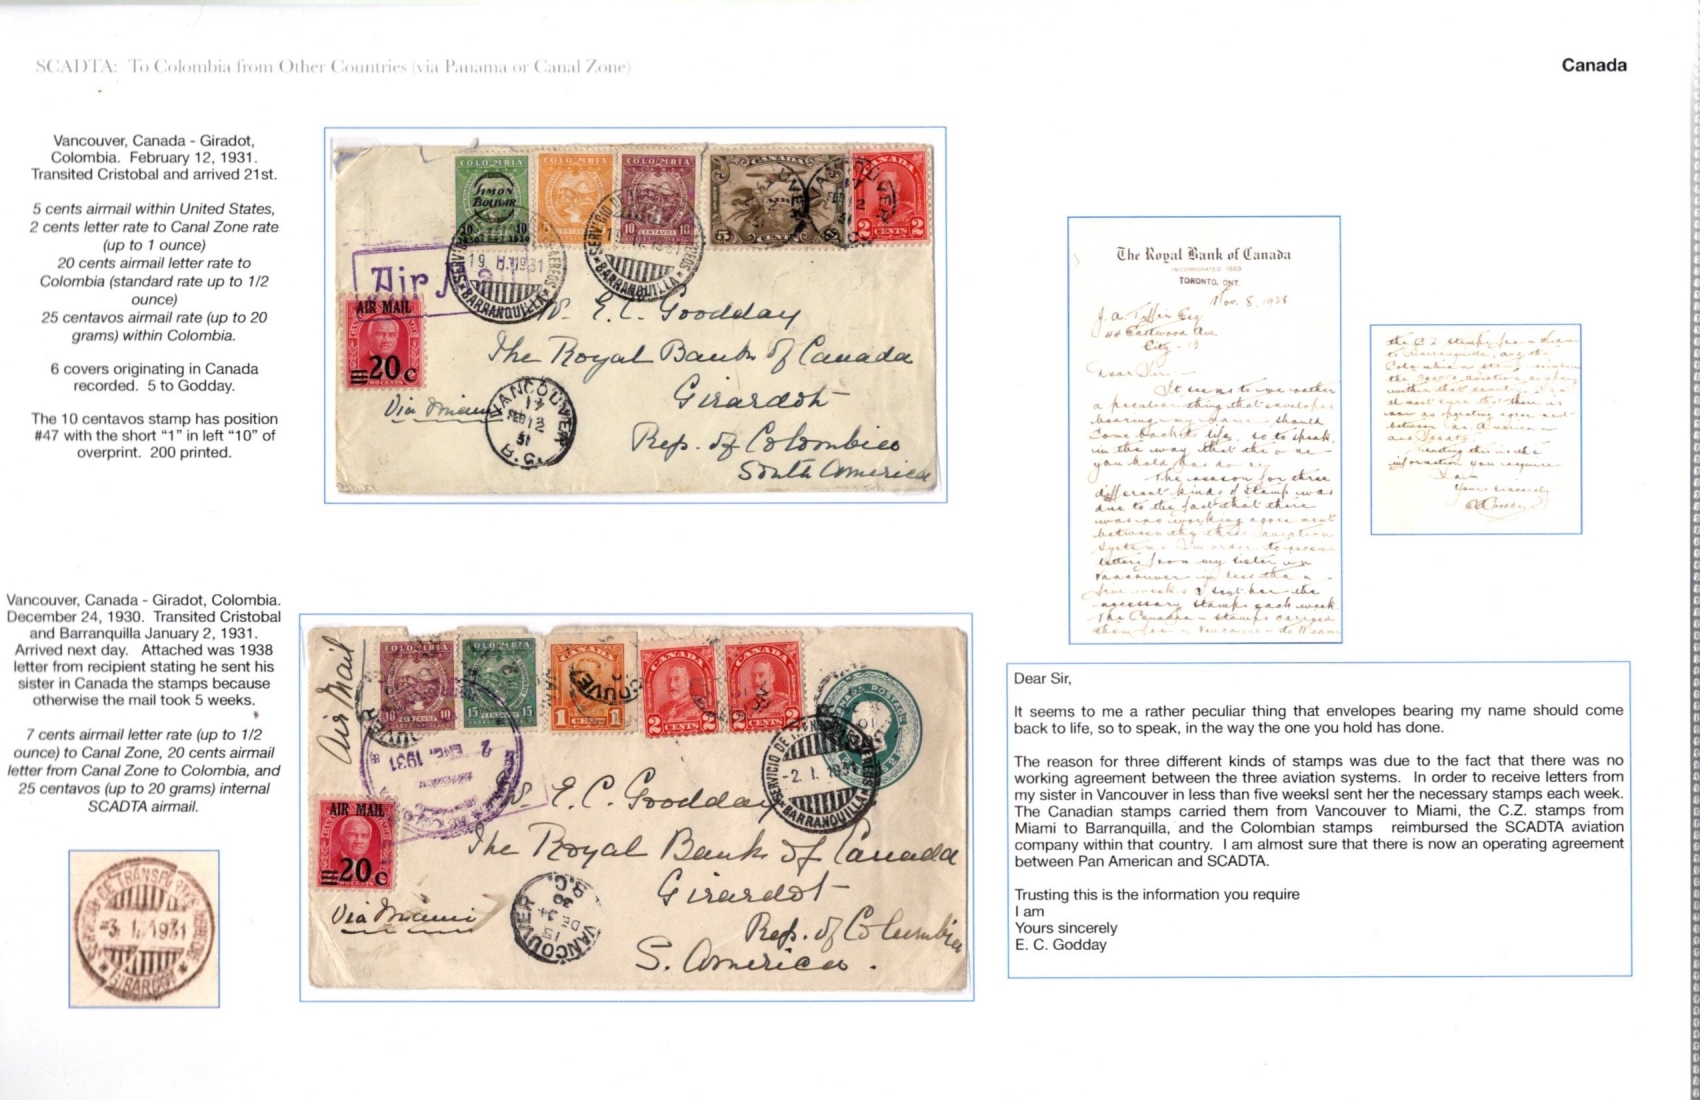 SCADTA: To Colombia from Other Countries (via Panama or Canal Zone)
Canada
Vancouver, Canada - Giradot,
Colombia. February 12, 1931.
Transited Cristobal and arrived 21st.
5 cents airmail within United States,
2 cents letter rate to Canal Zone rate
(up to 1 ounce)
20 cents airmail letter rate to
Colombia (standard rate up to 1/2
ounce)
25 centavos airmail rate (up to 20
grams) within Colombia.
6 covers originating in Canada
recorded. 5 to Godday.
The 10 centavos stamp has position
#47 with the short “1” in left “10” of
overprint. 200 printed.
COLOMBIA
SIMON
BOLIVAR
COLOMBIA
COLOMBIA
10 CENTAVOS 10
CANADA
5 CENTS
CANADA
2 CENTS 2
VANCOUVER
17
FEB 12
31
SERVICIO DE
BARRANQUILLA
Air Mail
AIR MAIL
20 c
E. C. Goodday
The Royal Bank of Canada
Girardot
Rep. of Colombia
South America
Via Miami
VANCOUVER
17
FEB 12
31
B.C.
The Royal Bank of Canada
INCORPORATED 1869
TORONTO, ONT.
Nov. 8, 1938
44 Eastwood Ave
City - 13
Dear Sir, -
It seems to me rather
a peculiar thing that envelopes
bearing my name should
come back to life, so to speak,
in the way that the one
you hold has done.
The reason for three
different kinds of stamp was
due to the fact that there
was no working agreement
between the three aviation
systems. In order to receive
letters from my sister in
Vancouver in less than
five weeks I sent her the
necessary stamps each week.
The Canadian stamps carried
them from Vancouver to Miami
the C.Z. stamps from Miami
to Barranquilla, and the
Trusting this is the
information you require
I am
Yours sincerely
Vancouver, Canada - Giradot, Colombia.
December 24, 1930. Transited Cristobal
and Barranquilla January 2, 1931.
Arrived next day. Attached was 1938
letter from recipient stating he sent his
sister in Canada the stamps because
otherwise the mail took 5 weeks.
7 cents airmail letter rate (up to 1/2
ounce) to Canal Zone, 20 cents airmail
letter from Canal Zone to Colombia, and
25 centavos (up to 20 grams) internal
SCADTA airmail.
Air Mail
COLOMBIA
COLOMBIA
15 CENTAVOS 15
CANADA
1 CENT 1
CANADA
2 CENTS 2
CANADA
CENTS 2
2 ENE. 1931
SERVICIO DE
-2. 1. 1931
BARRANQUILLA
AIR MAIL
20 c
E. C. Goodday
The Royal Bank of Canada
Girardot
Rep. of Columbia
S. America.
Via Miami
VANCOUVER
15
DE 24
30
B.C.
SERVICIO DE TRANSPORTES AEREOS
-3. 1. 1931
GIRARDOT
Dear Sir,
It seems to me a rather peculiar thing that envelopes bearing my name should come
back to life, so to speak, in the way the one you hold has done.
The reason for three different kinds of stamps was due to the fact that there was no
working agreement between the three aviation systems. In order to receive letters from
my sister in Vancouver in less than five weeksI sent her the necessary stamps each week.
The Canadian stamps carried them from Vancouver to Miami, the C.Z. stamps from
Miami to Barranquilla, and the Colombian stamps reimbursed the SCADTA aviation
company within that country. I am almost sure that there is now an operating agreement
between Pan American and SCADTA.
Trusting this is the information you require
I am
Yours sincerely
E. C. Godday